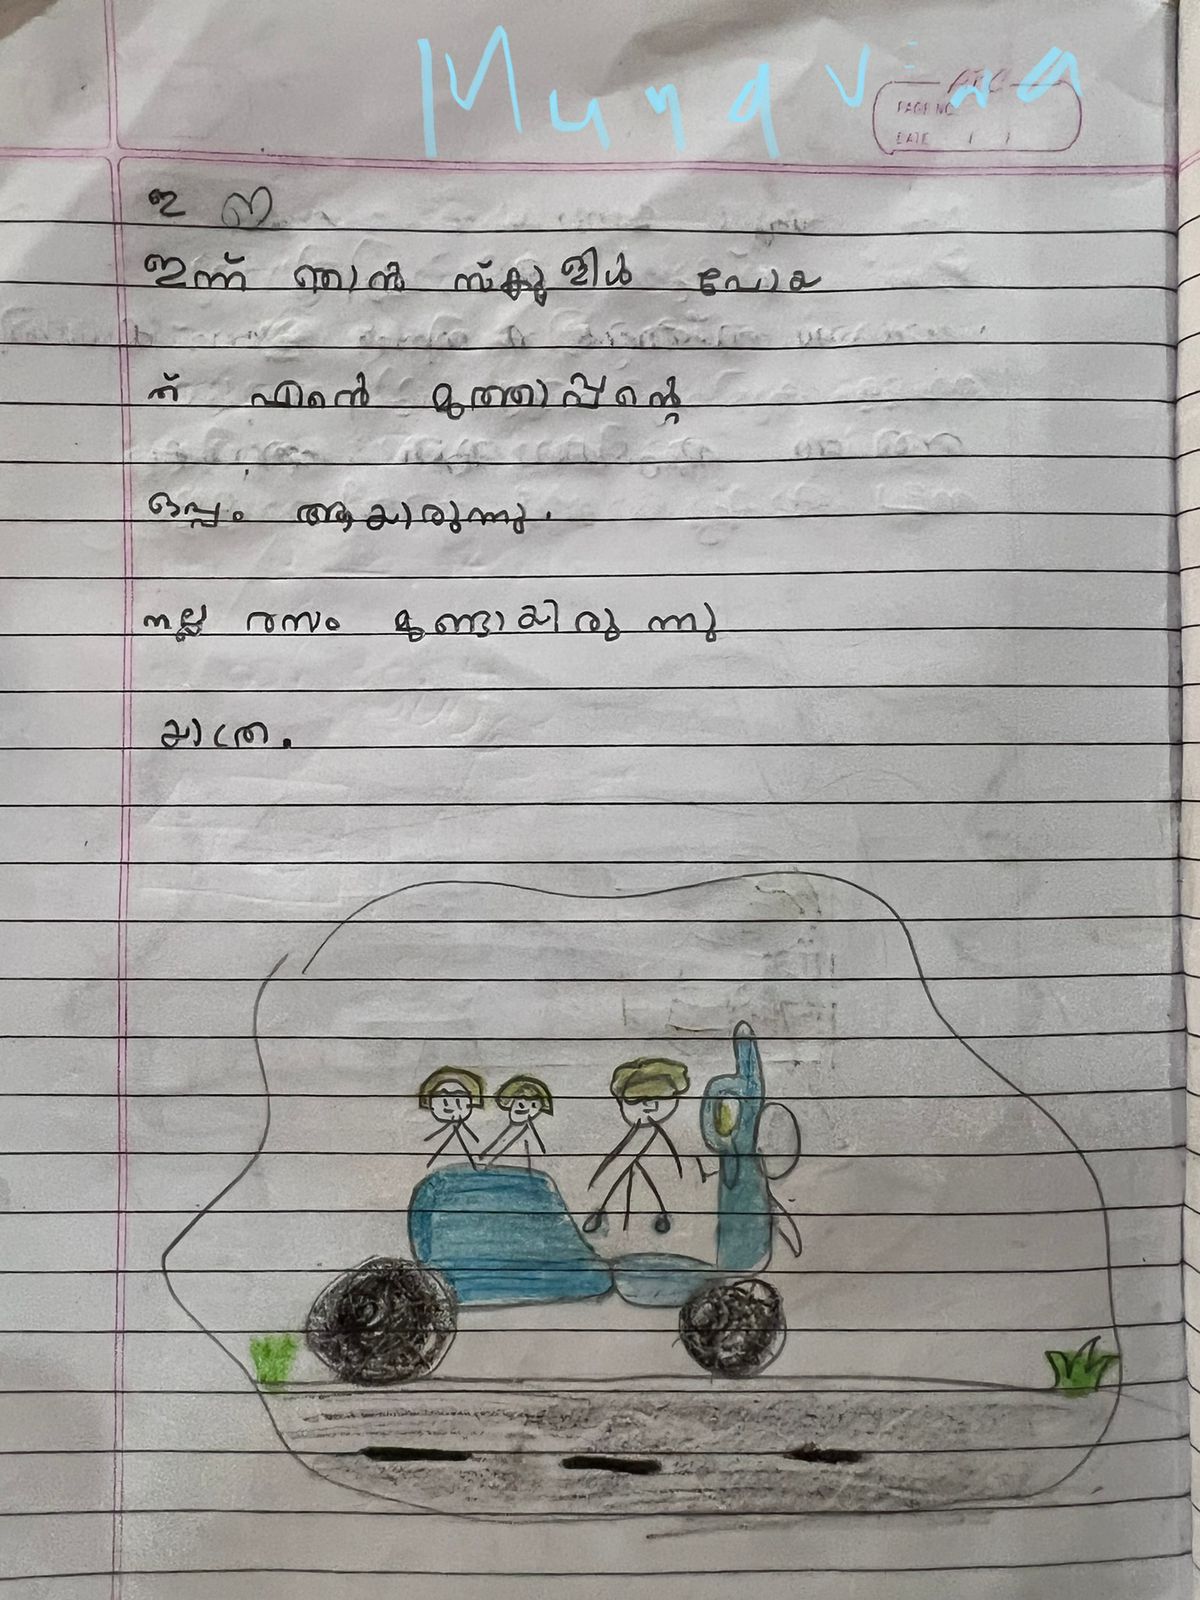 Munavina
ARC
PAGE NO.
DATE / /
ഇ ഇ
ഇന്ന് ഞാൻ സ്കൂളിൽ പോയ
ത് എൻെ മുത്താപ്പൻ്റെ
ഒപ്പം ആയാരുന്നു.
നല്ല രസം മുണ്ടായിരുന്നു
യാത്ര.